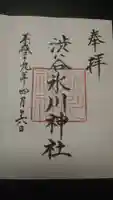 奉拝
渋谷氷川神社
平成二十九年四月二六日